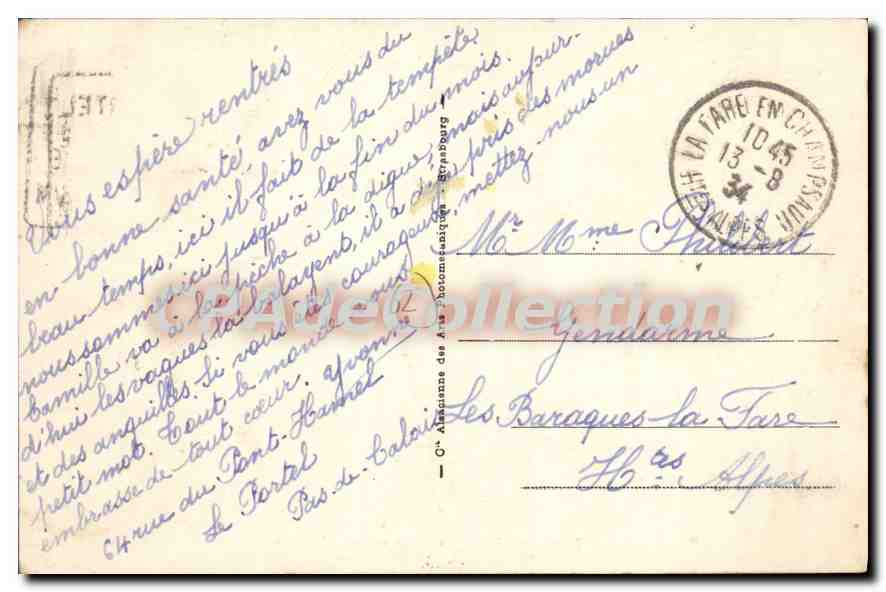 Vous espère rentrés
en bonne santé, avez vous du
beau temps, ici il fait de la tempête
nous sommes ici jusqu'à la fin du mois.
Camille va à la pêche à la digue, mais aujour-
d'hui les vagues la balayent, il a déjà pris des morues
et des anguilles. Si vous êtes courageux, mettez nous un
petit mot. Tout le monde vous
embrasse de tout cœur. Yvonne
64 rue du Pont-Hamel
Le Portel
Pas-de-Calais
62
— Cie Alsacienne des Arts Photomécaniques - Strasbourg —
LA FARE EN CHAMPSAUR
10 45
13 -8
34
Mr Mme
Gendarme
Les Baraques-la-Fare
Htes Alpes
CPAdeCollection